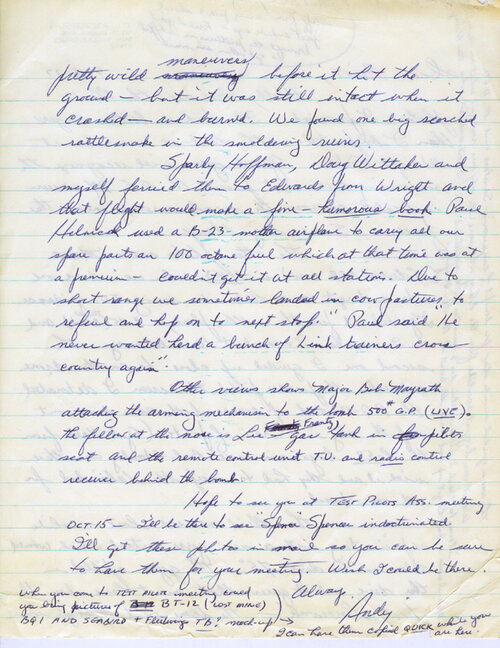 maneuvers
pretty wild before it hit the
ground — but it was still intact when it
crashed — and burned. We found one big scorched
rattlesnake in the smoldering ruins.
Sparky Hoffman, Doug Wittaker and
myself ferried them to Edwards from Wright and
that flight would make a fine — humorous book. Paul
used a B-23 mother airplane to carry all our
spare parts an 100 octane fuel which at that time was at
a premium — couldn't get it at all stations. Due to
short range we sometimes landed in cow pastures to
refuel and hop on to next stop." Paul said "he
never wanted herd a bunch of Link trainers cross
country again".
Other views shows Major Bob Mayrath
attaching the arming mechanism to the bomb 500# G.P. (LIVE).
Frantz
the fellow at the nose is Lee — gas tank in pilots
seat and the remote control unit T.V. and radio control
receiver behind the bomb.
Hope to see you at TEST PILOTS ASS. meeting
OCT 15 — I'll be there to see "Spence" Spencer indoctrinated
I'll get these photos in mail so you can be sure
to have them for your meeting. Wish I could be there.
Always
Andy
When you come to TEST PILOT meeting could
you bring pictures of BT-12 (LOST MINE)
BQ1 AND SEABIRD + Fleetwings TB? mock-up →
I can have them copied QUICK while you
are here.